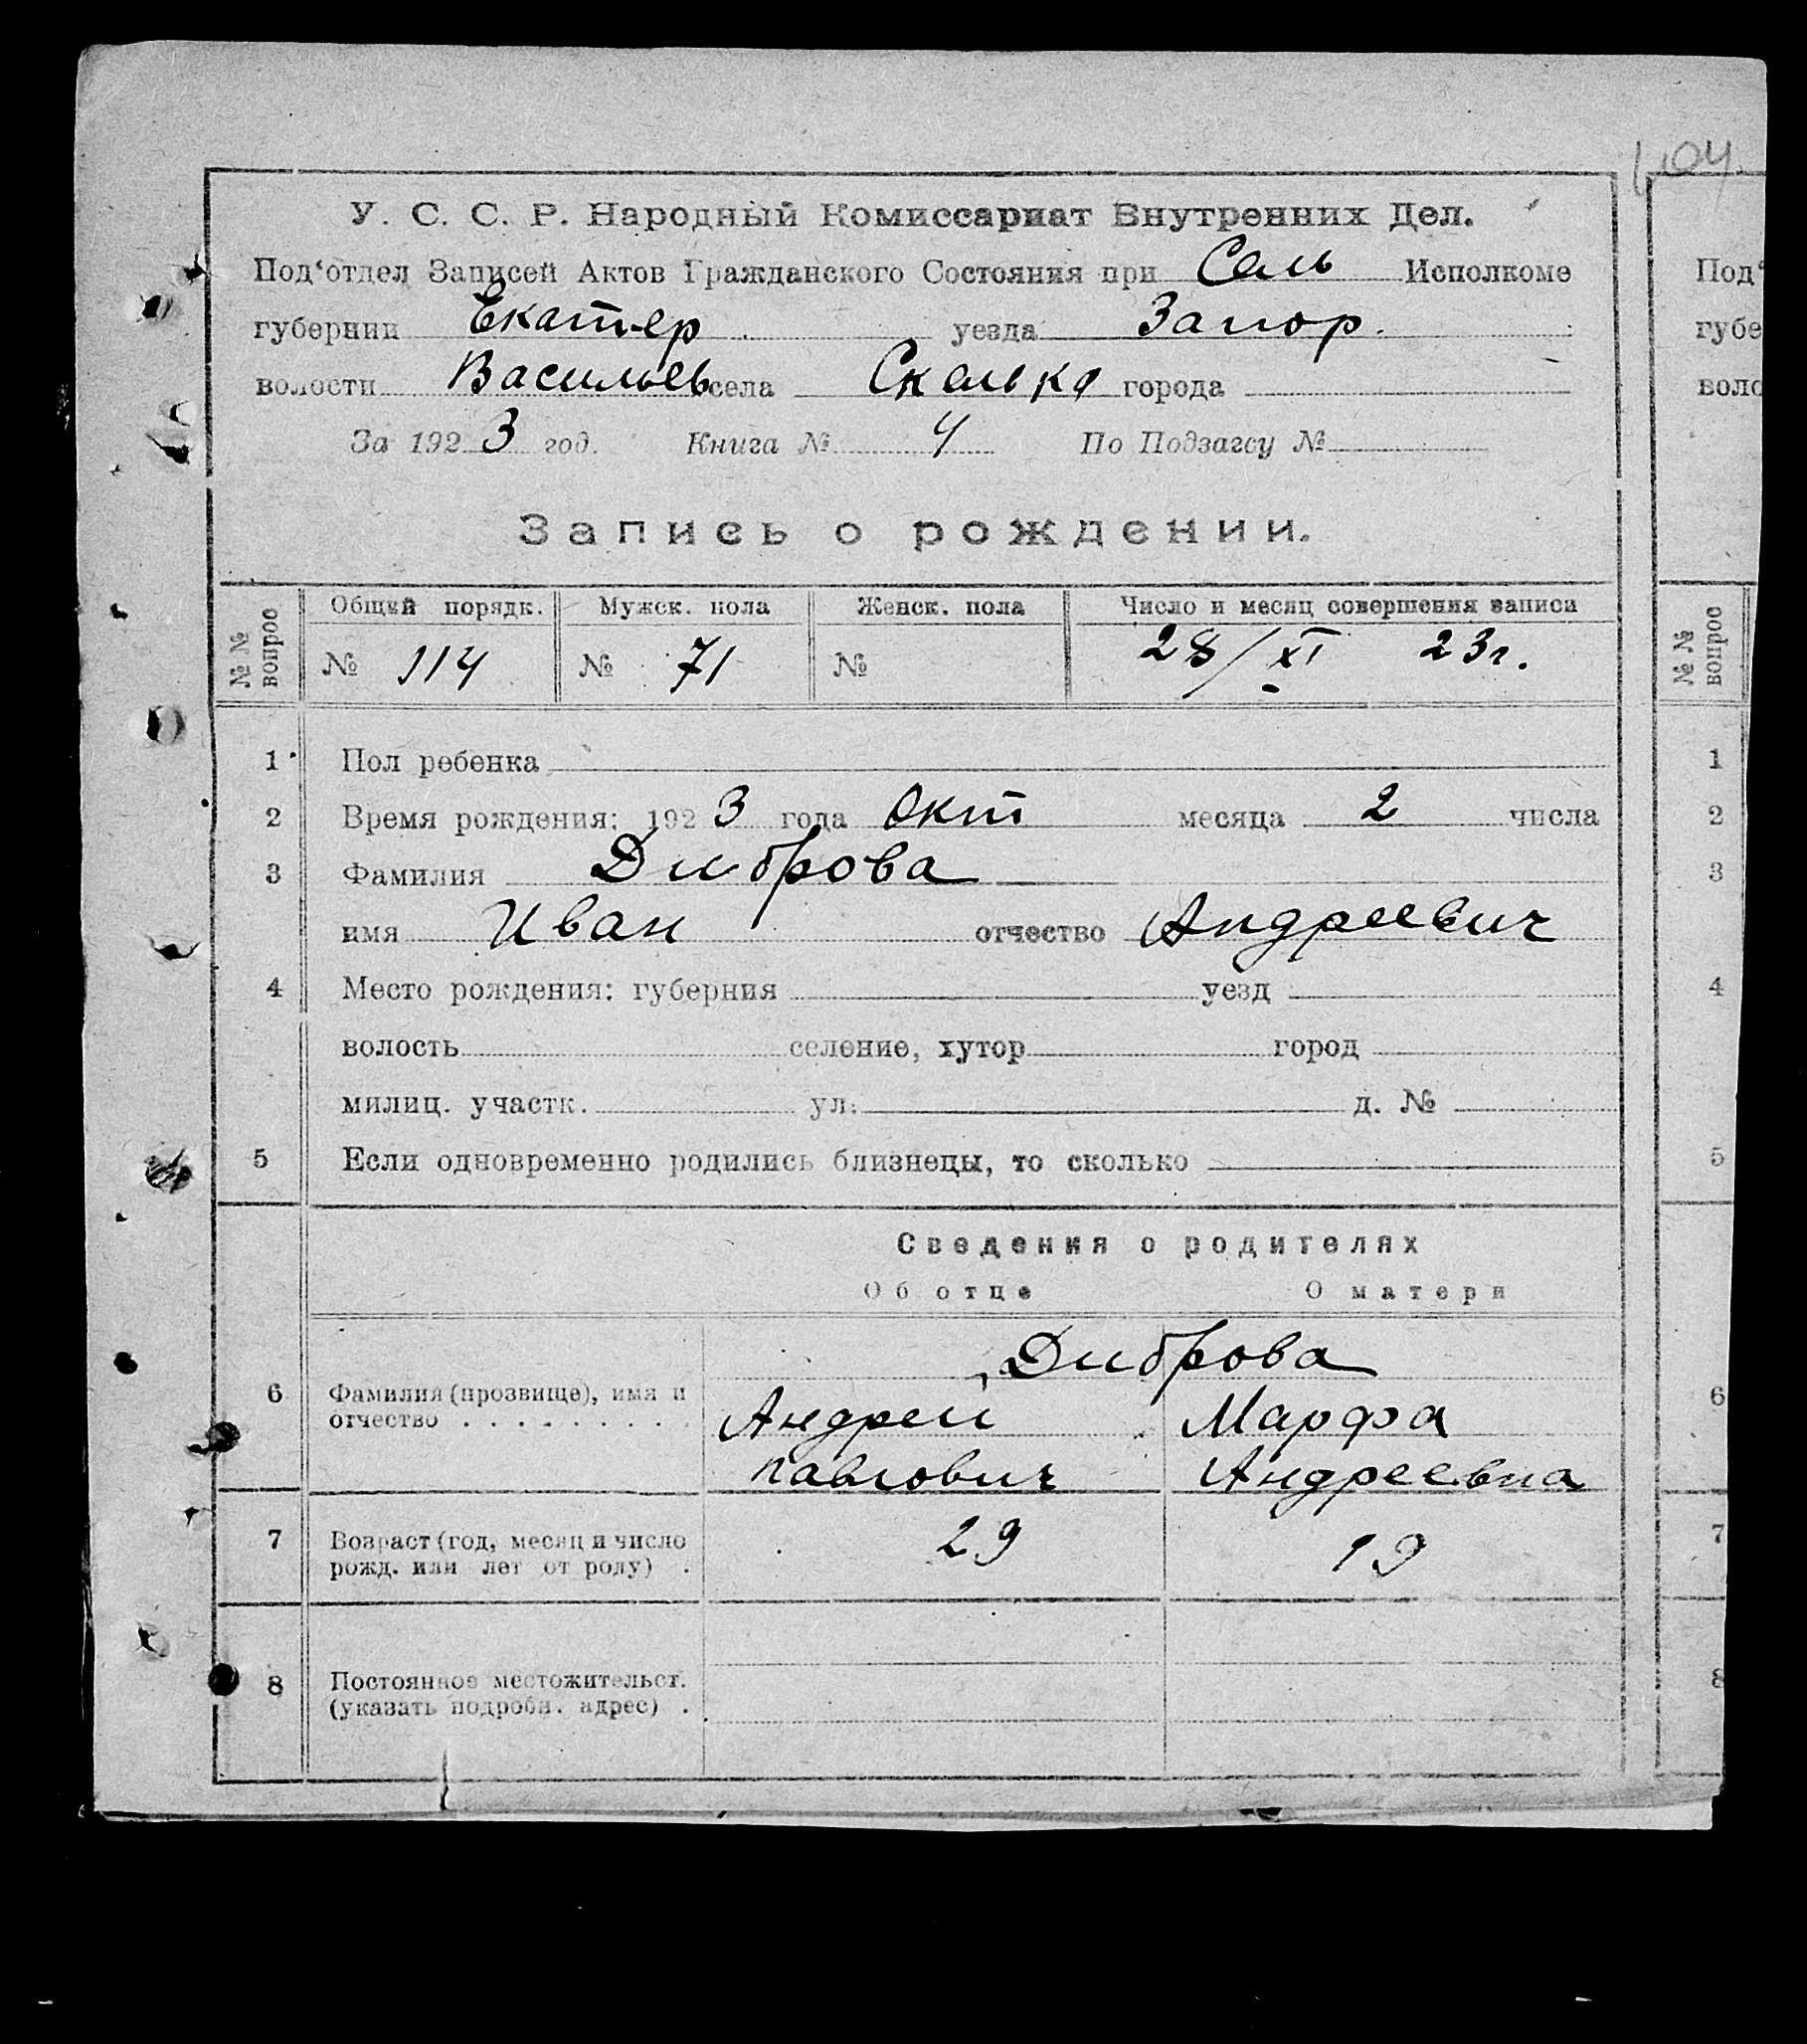 104.
У. С. С. Р. Народный Комиссариат Внутренних Дел.
Под‘отдел Записей Актов Гражданского Состояния при Сель Исполкоме
губернии Екатер уезда Запор.
волости Васильев села Скелька города
За 1923 год. Книга № 4 По Подзагсу №
Запись о рождении.
№ № вопрос Общий порядк. Мужск. пола Женск. пола Число и месяц совершения записи
№ 114 № 71 № 28/XI 23г.
1 Пол ребенка
2 Время рождения: 1923 года Окт месяца 2 числа
3 Фамилия Диброва
имя Иван отчество Андреевич
4 Место рождения: губерния уезд
волость селение, хутор город
милиц. участк. ул. д. №
5 Если одновременно родились близнецы, то сколько
Сведения о родителях
Об отце О матери
Диброва
6 Фамилия (прозвище), имя и
отчество . . . . . . . . . Андрей Марфа
Павлович Андреевна
7 Возраст (год, месяц и число
рожд. или лет от роду) . 29 19
8 Постоянное местожительст.
(указать подробн. адрес) .
Под‘
губе
воло
№ № вопрос
1
2
3
4
5
6
7
8